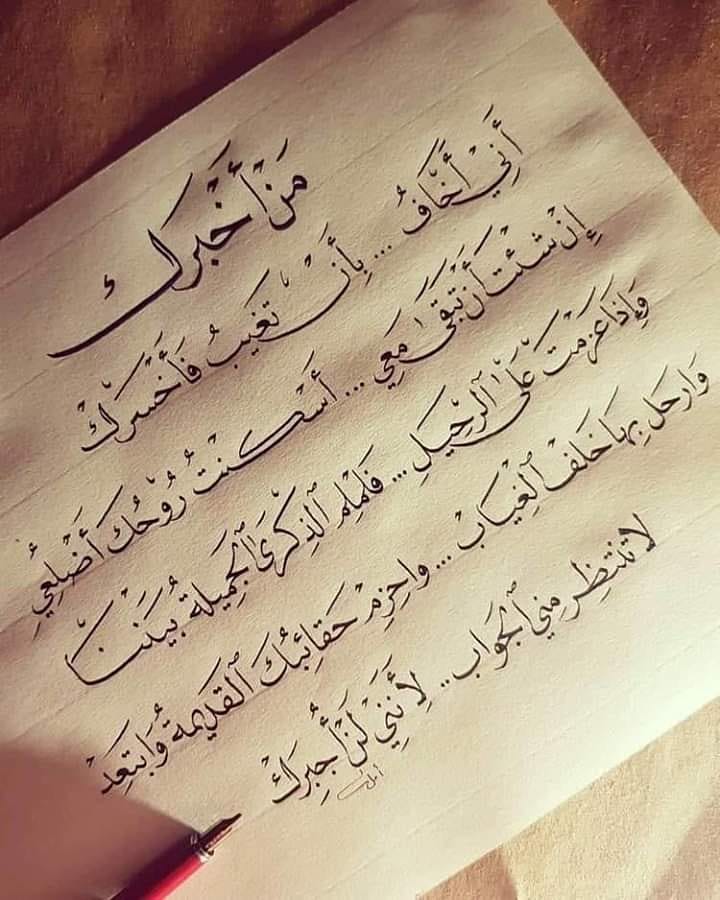 مَنْ أَخْبَرَك
أَنِّي أَخَافُ ... بِأَنْ تَغِيبُ فَأَخْسَرَكْ
إِنْ شئتَ أَن تَبْقَىٰ مَعِي ... أَسْكنْتُ رُوْحُكَ أَضْلعِي
وَإِذَا عَزمْتَ عَلَىٰ ٱلرَّحِيلِ ... فَلملِم ٱلذِكْرَىٰ ٱلجَمِيلة بَيْنَنَا
وَارحَل بِهَا خَلفَ ٱلغِيَابْ ... واحزِمْ حَقائِبُكَ ٱلقَدِيمة وَابتَعِدْ
لا تنتظِر مِني ٱلجَوَاب .. لِأَنَنِي لَنْ أُجبِرَكْ